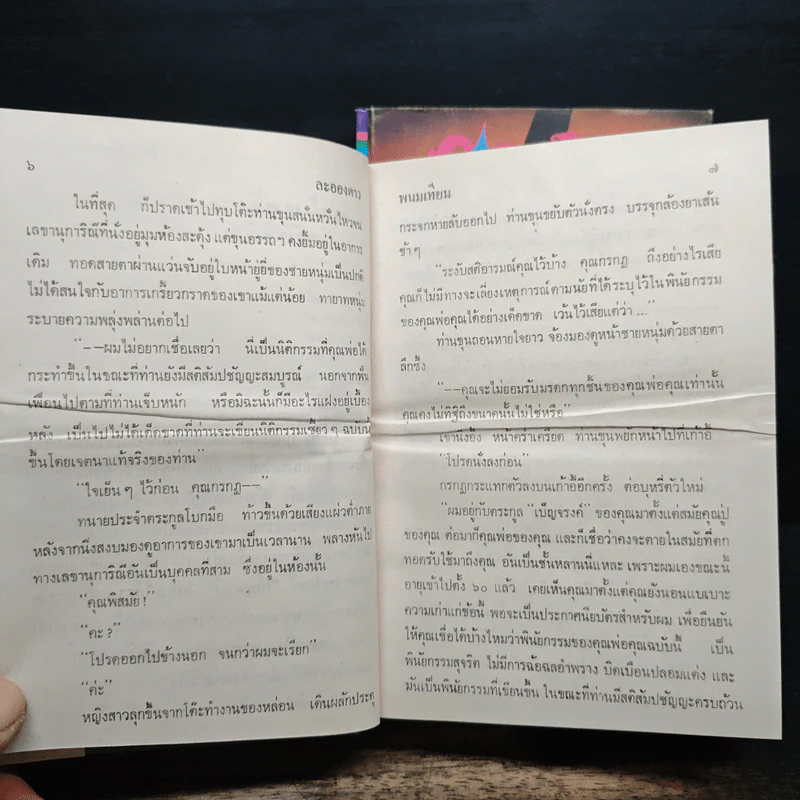 ๖
ละอองดาว
ในที่สุด ก็ปราดเข้าไปทุบโต๊ะท่านขุนสนั่นหวั่นไหวจน
เลขานุการิณีที่นั่งอยู่มุมห้องสะดุ้ง แต่ขุนอรรถฯ คงยิ้มอยู่ในอาการ
เดิม ทอดสายตาผ่านแว่นจับอยู่ใบหน้ายู่ยี่ของชายหนุ่มเป็นปกติ
ไม่ได้สนใจกับอาการเกรี้ยวกราดของเขาแม้แต่น้อย ทายาทหนุ่ม
ระบายความพลุ่งพล่านต่อไป
“--ผมไม่อยากเชื่อเลยว่า นี่เป็นนิติกรรมที่คุณพ่อได้
กระทำขึ้นในขณะที่ท่านยังมีสติสัมปชัญญะสมบูรณ์ นอกจากฟั่น
เฟือนไปตามที่ท่านเจ็บหนัก หรือมิฉะนั้นก็มีอะไรแฝงอยู่เบื้อง
หลัง เป็นไปไม่ได้เด็ดขาดที่ท่านจะเขียนนิติกรรมเซี้ยวๆ ฉบับนี้
ขึ้นโดยเจตนาแท้จริงของท่าน”
“ใจเย็นๆ ไว้ก่อน คุณกรกฎ--”
ทนายประจำตระกูลโบกมือ ท้าวขึ้นด้วยเสียงแผ่วต่ำภาย
หลังจากนิ่งสงบมองดูอาการของเขามาเป็นเวลานาน พลางหันไป
ทางเลขานุการิณีอันเป็นบุคคลที่สาม ซึ่งอยู่ในห้องนั้น
“คุณพิสมัย!”
“คะ?”
“โปรดออกไปข้างนอก จนกว่าผมจะเรียก”
“ค่ะ”
หญิงสาวลุกขึ้นจากโต๊ะทำงานของหล่อน เดินผลักประตู
พนมเทียน
๗
กระจกหายลับออกไป ท่านขุนขยับตัวนั่งตรง บรรจุกล้องยาเส้น
ช้าๆ
“ระงับสติอารมณ์คุณไว้บ้าง คุณกรกฎ ถึงอย่างไรเสีย
คุณก็ไม่มีทางจะเลี่ยงเหตุการณ์ตามนัยที่ได้ระบุไว้ในพินัยกรรม
ของคุณพ่อคุณได้อย่างเด็ดขาด เว้นไว้เสียแต่ว่า ...”
ท่านขุนถอนหายใจยาว จ้องมองดูหน้าชายหนุ่มด้วยสายตา
ลึกซึ้ง
“--คุณจะไม่ยอมรับมรดกทุกชิ้นของคุณพ่อคุณเท่านั้น
คุณคงไม่ทิฐิถึงขนาดนั้นไม่ใช่หรือ”
เขานิ่งอึ้ง หน้าคร่ำเครียด ท่านขุนพยักหน้าไปที่เก้าอี้
“โปรดนั่งลงก่อน”
กรกฎกระแทกตัวลงบนเก้าอี้อีกครั้ง ต่อบุหรี่ตัวใหม่
“ผมอยู่กับตระกูล “เบ็ญจรงค์” ของคุณมาตั้งแต่สมัยคุณปู่
ของคุณ ต่อมาก็คุณพ่อของคุณ และก็เชื่อว่าคงจะตายในสมัยที่ตก
ทอดรับใช้มาถึงคุณ อันเป็นชั้นหลานนี่แหละ เพราะผมเองขณะนี้
อายุเข้าไปตั้ง ๖๐ แล้ว เคยเห็นคุณมาตั้งแต่คุณยังนอนแบเบาะ
ความเก่าแก่ข้อนี้ พอจะเป็นประกาศนียบัตรสำหรับผม เพื่อยืนยัน
ให้คุณเชื่อได้บ้างไหมว่าพินัยกรรมของคุณพ่อคุณฉบับนี้ เป็น
พินัยกรรมสุจริต ไม่มีการฉ้อฉลอำพราง บิดเบือนปลอมแต่ง และ
มันเป็นพินัยกรรมที่เขียนขึ้น ในขณะที่ท่านมีสติสัมปชัญญะครบถ้วน